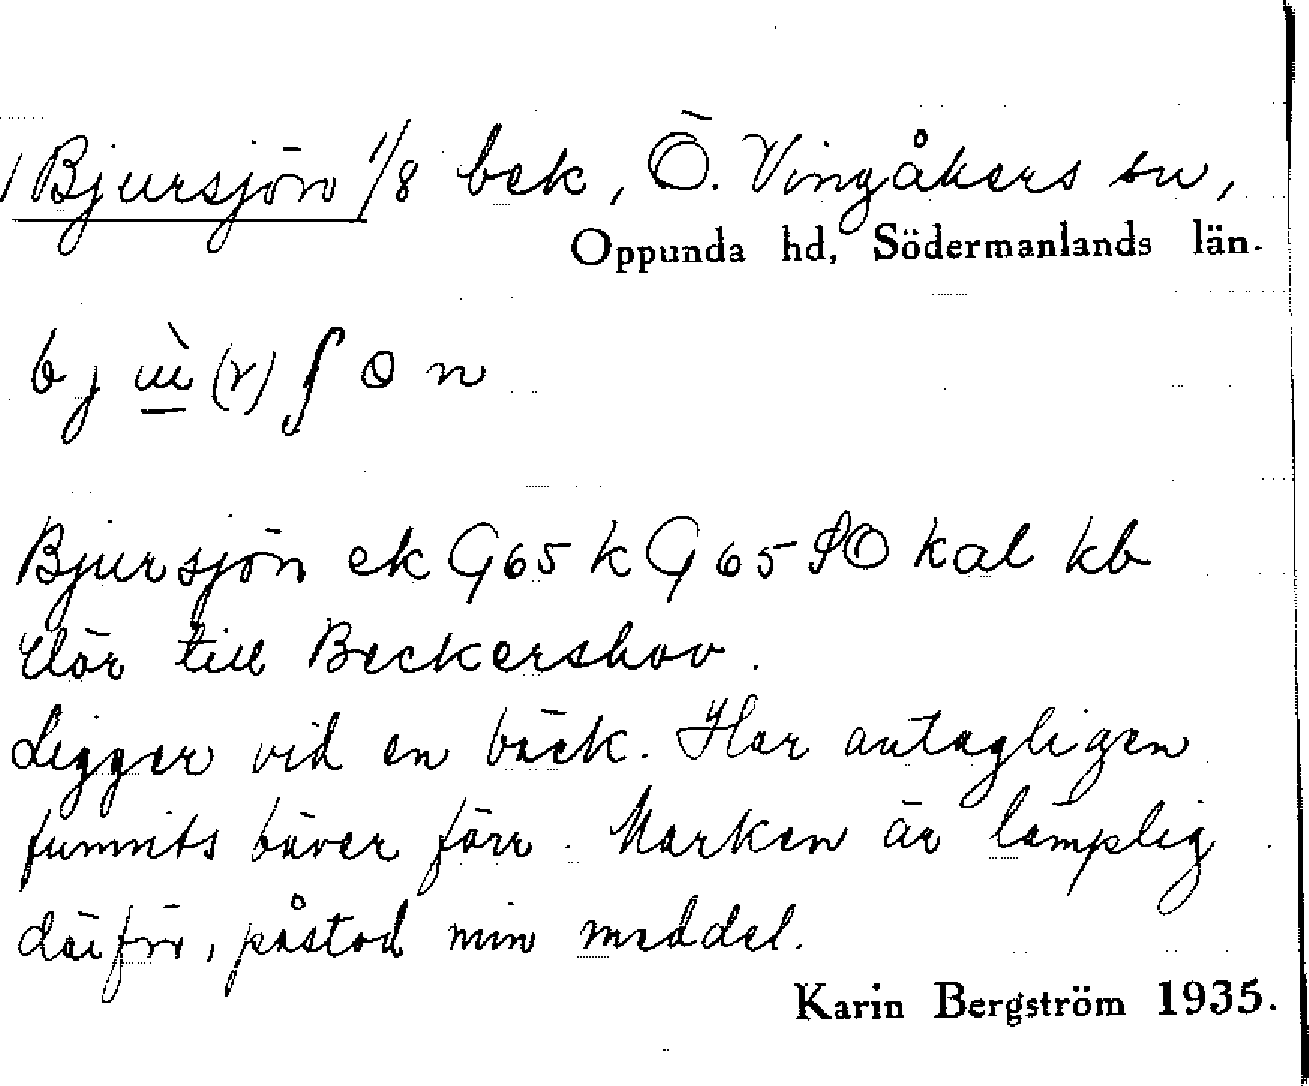 Bjursjön 1/8 bek, Ö. Vingåkers sn,
Oppunda hd, Södermanlands län.
Bjursjön ek G65 k G65 SO kal kb
Hör till Beckershov.
Ligger vid en bäck. Har antagligen
funnits bäver förr. Marken är lämplig
därför, påstod min meddel.
Karin Bergström 1935.